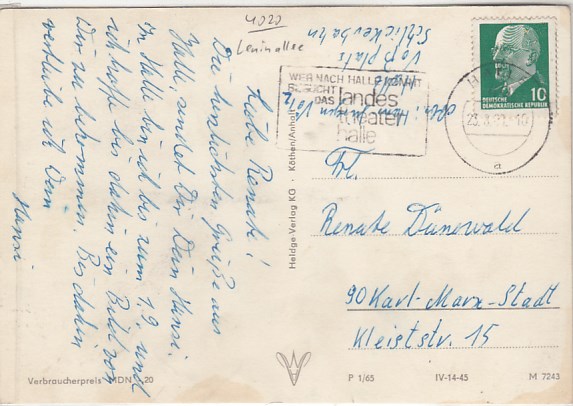 4020
Leninallee
Liebe Renate!
Die herzlichsten Grüße aus
Halle, sendet Dir Dein Hansi.
In Halle bin ich bis zum 1.9. und
ich hoffe bis dahin ein Bild von
Dir zu bekommen. Bis dahin
verbleibe ich Dein
Hansi
Schlickerbahn
WER NACH HALLE KOMMT
BESUCHT
DAS landes
theater
halle
HALLE
10
DEUTSCHE
DEMOKRATISCHE REPUBLIK
a
Frl.
Renate Dünewald
90 Karl-Marx-Stadt
Kleiststr. 15
Heldge Verlag KG · Köthen/Anhalt
Verbraucherpreis MDN 20
P 1/65 IV-14-45 M 7243